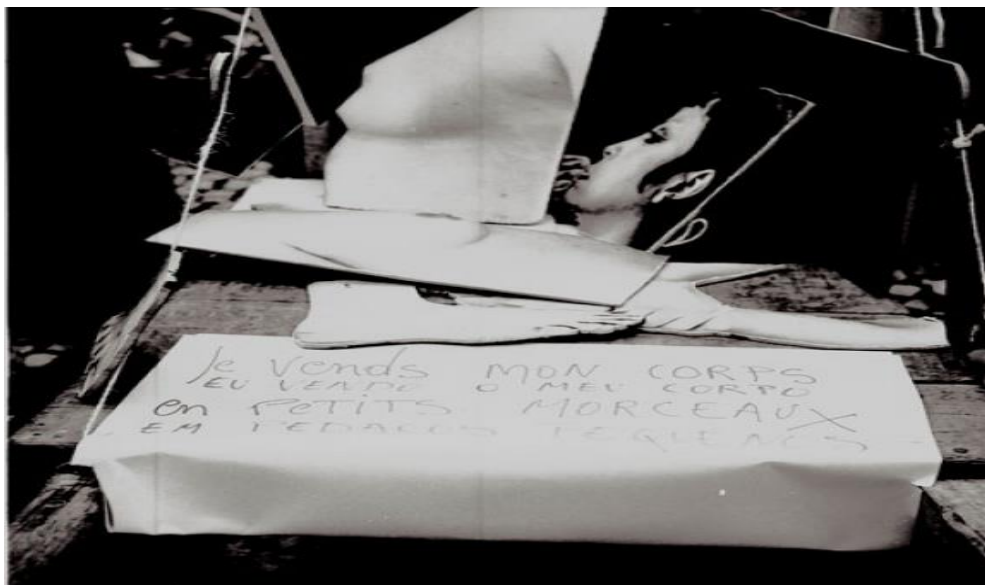 Je vends MON CORPS
EU VENDO O MEU CORPO
en PETITS MORCEAUX
EM PEDAÇOS PEQUENOS